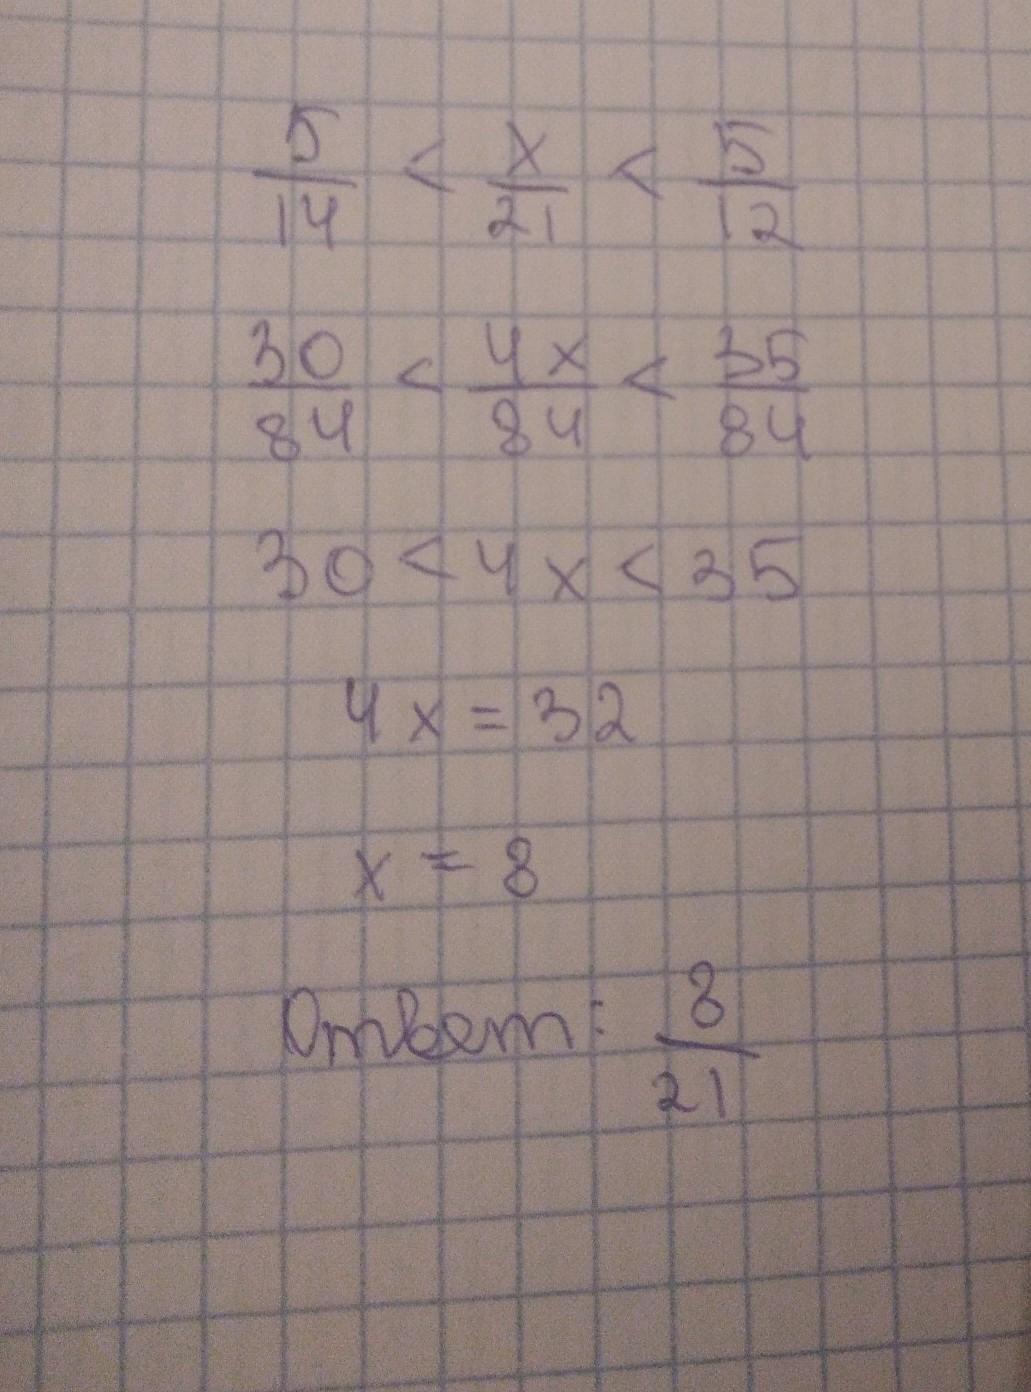 5/14 < x/21 < 5/12
30/84 < 4x/84 < 35/84
30 < 4x < 35
4x = 32
x = 8
Ответ: 8/21